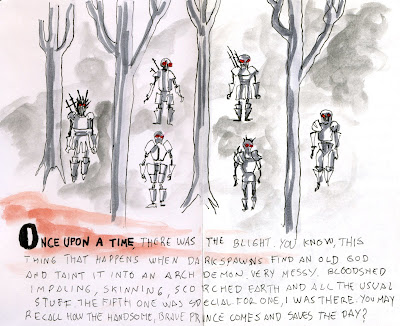 ONCE UPON A TIME, THERE WAS THE BLIGHT. YOU KNOW, THIS
THING THAT HAPPENS WHEN DARKSPAWNS FIND AN OLD GOD
AND TAINT IT INTO AN ARCHDEMON. VERY MESSY. BLOODSHED
IMPALING, SKINNING, SCORCHED EARTH AND ALL THE USUAL
STUFF. THE FIFTH ONE WAS SPECIAL FOR ONE, I WAS THERE. YOU MAY
RECALL HOW THE HANDSOME, BRAVE PRINCE COMES AND SAVES THE DAY?